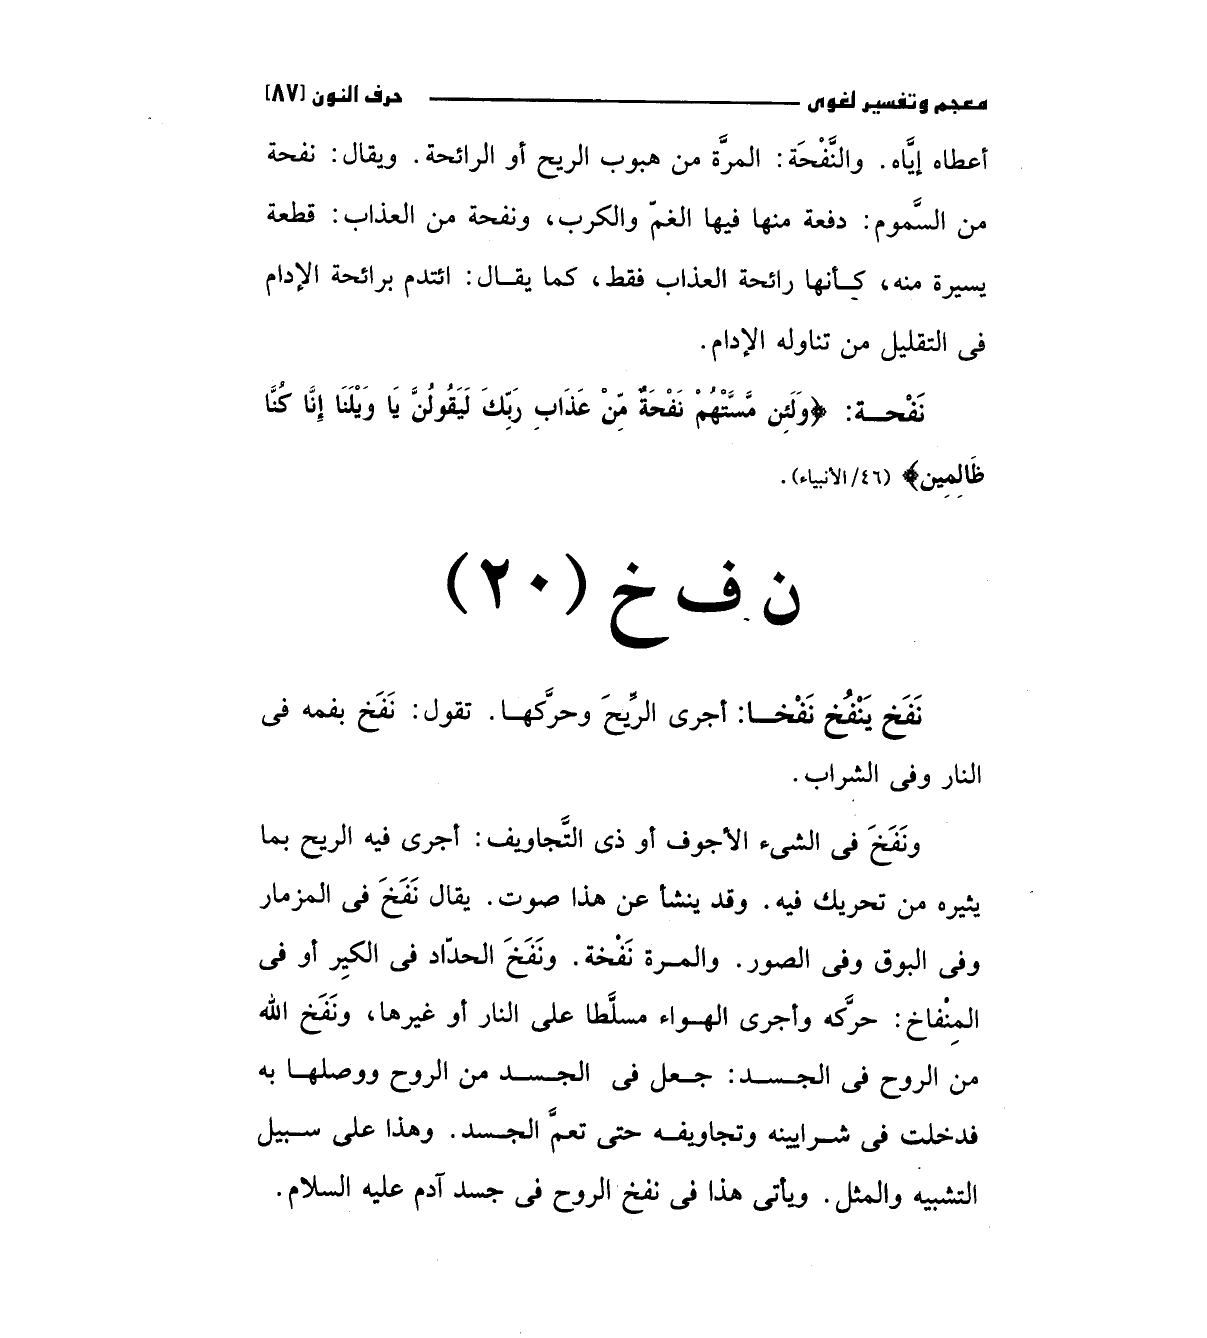 معجم وتفسير لغوى حرف النون [٨٧]
أعطاه إيَّاه. والنَّفْحَة: المرَّة من هبوب الريح أو الرائحة. ويقال: نفحة
من السَّموم: دفعة منها فيها الغمّ والكرب، ونفحة من العذاب: قطعة
يسيرة منه، كأنها رائحة العذاب فقط، كما يقال: ائتدم برائحة الإدام
فى التقليل من تناوله الإدام.
نَفْحة: ﴿وَلَئِن مَّسَّتْهُمْ نَفْحَةٌ مِّنْ عَذَابِ رَبِّكَ لَيَقُولُنَّ يَا وَيْلَنَا إِنَّا كُنَّا
ظَالِمِين﴾ (٤٦/ الأنبياء).
ن ف خ (٢٠)
نَفَخ يَنْفُخ نَفْخا: أجرى الرِّيحَ وحرَّكها. تقول: نَفَخ بفمه فى
النار وفى الشراب.
ونَفَخَ فى الشىء الأجوف أو ذى التَّجاويف: أجرى فيه الريح بما
يثيره من تحريك فيه. وقد ينشأ عن هذا صوت. يقال نَفَخَ فى المزمار
وفى البوق وفى الصور. والمرة نَفْخة. ونَفَخَ الحدّاد فى الكِير أو فى
المِنْفاخ: حرَّكه وأجرى الهواء مسلَّطا على النار أو غيرها، ونَفَخ الله
من الروح فى الجسد: جعل فى الجسد من الروح ووصلها به
فدخلت فى شرايينه وتجاويفه حتى تعمَّ الجسد. وهذا على سبيل
التشبيه والمثل. ويأتى هذا فى نفخ الروح فى جسد آدم عليه السلام.